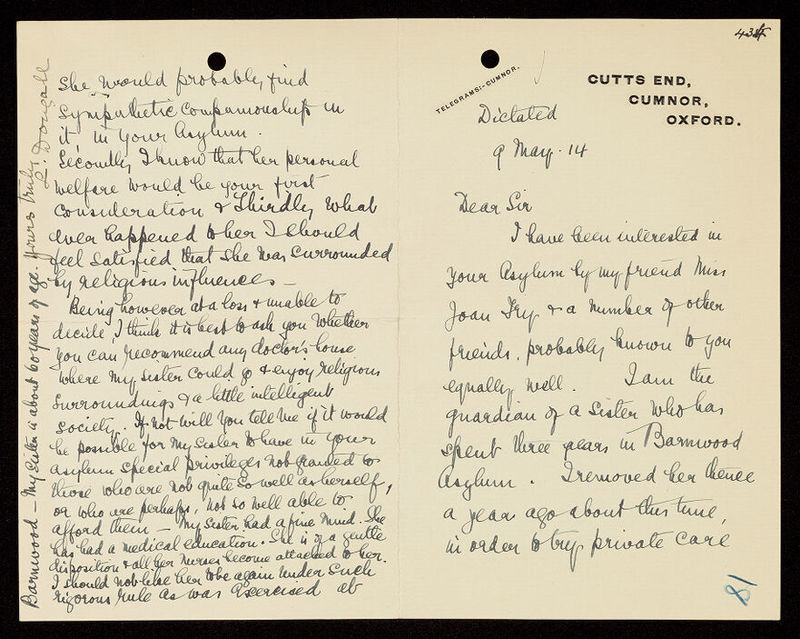 43
TELEGRAMS:-CUMNOR.
CUTTS END,
CUMNOR,
OXFORD.
Dictated
9 May. 14
Dear Sir
I have been interested in
your Asylum by my friend Miss
Joan Fry & a number of other
friends, probably known to you
equally well. I am the
guardian of a sister who has
spent three years in Barnwood
Asylum. I removed her thence
a year ago about this time,
in order to try private care
81
She would probably find
sympathetic companionship in
it, in your Asylum.
Secondly I know that her personal
welfare would be your first
consideration & Thirdly what
ever happened to her I should
feel satisfied that she was surrounded
by religious influences —
Being however at a loss & unable to
decide, I think it is best to ask you whether
you can recommend any doctor's house
where my sister could go & enjoy religious
surroundings & a little intelligent
society. If not will you tell me if it would
be possible for my sister to have in your
asylum special privileges not granted to
those who are not quite so well as herself,
or who are perhaps, not so well able to
afford them — My sister had a fine mind. She
has had a medical education. She is of a gentle
disposition & all her nurses become attached to her.
I should not like her to be again under such
rigorous rule as was exercised at
Barnwood — My sister is about 60 years of age. Yours truly
L. Dougall